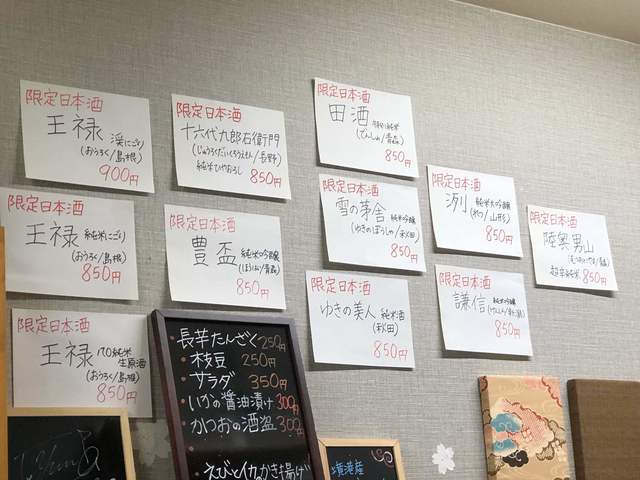 限定日本酒
王禄 渓にごり
(おうろく/島根)
900円
限定日本酒
十六代九郎右衛門
(じゅうろくだいくろうえもん/長野)
純米ひやおろし 850円
限定日本酒
田酒 特別純米
(でんしゅ/青森)
850円
限定日本酒
王禄 純米にごり
(おうろく/島根)
850円
限定日本酒
豊盃 純米吟醸
(ほうはい/青森)
850円
限定日本酒
雪の茅舎 純米吟醸
(ゆきのぼうしゃ/秋田)
850円
限定日本酒
洌 純米大吟醸
(れつ/山形)
850円
限定日本酒
陸奥男山
超辛純米 850円
限定日本酒
王禄 八〇純米
生原酒
(おうろく/島根)
850円
限定日本酒
ゆきの美人 純米酒
(秋田)
850円
限定日本酒
謙信 純米吟醸
(けんしん/新潟)
850円
・長芋たんざく 250円
・枝豆 250円
・サラダ 350円
・いかの醤油漬け 300円
・かつおの酒盗 300円
・えびとイカのかき揚げ